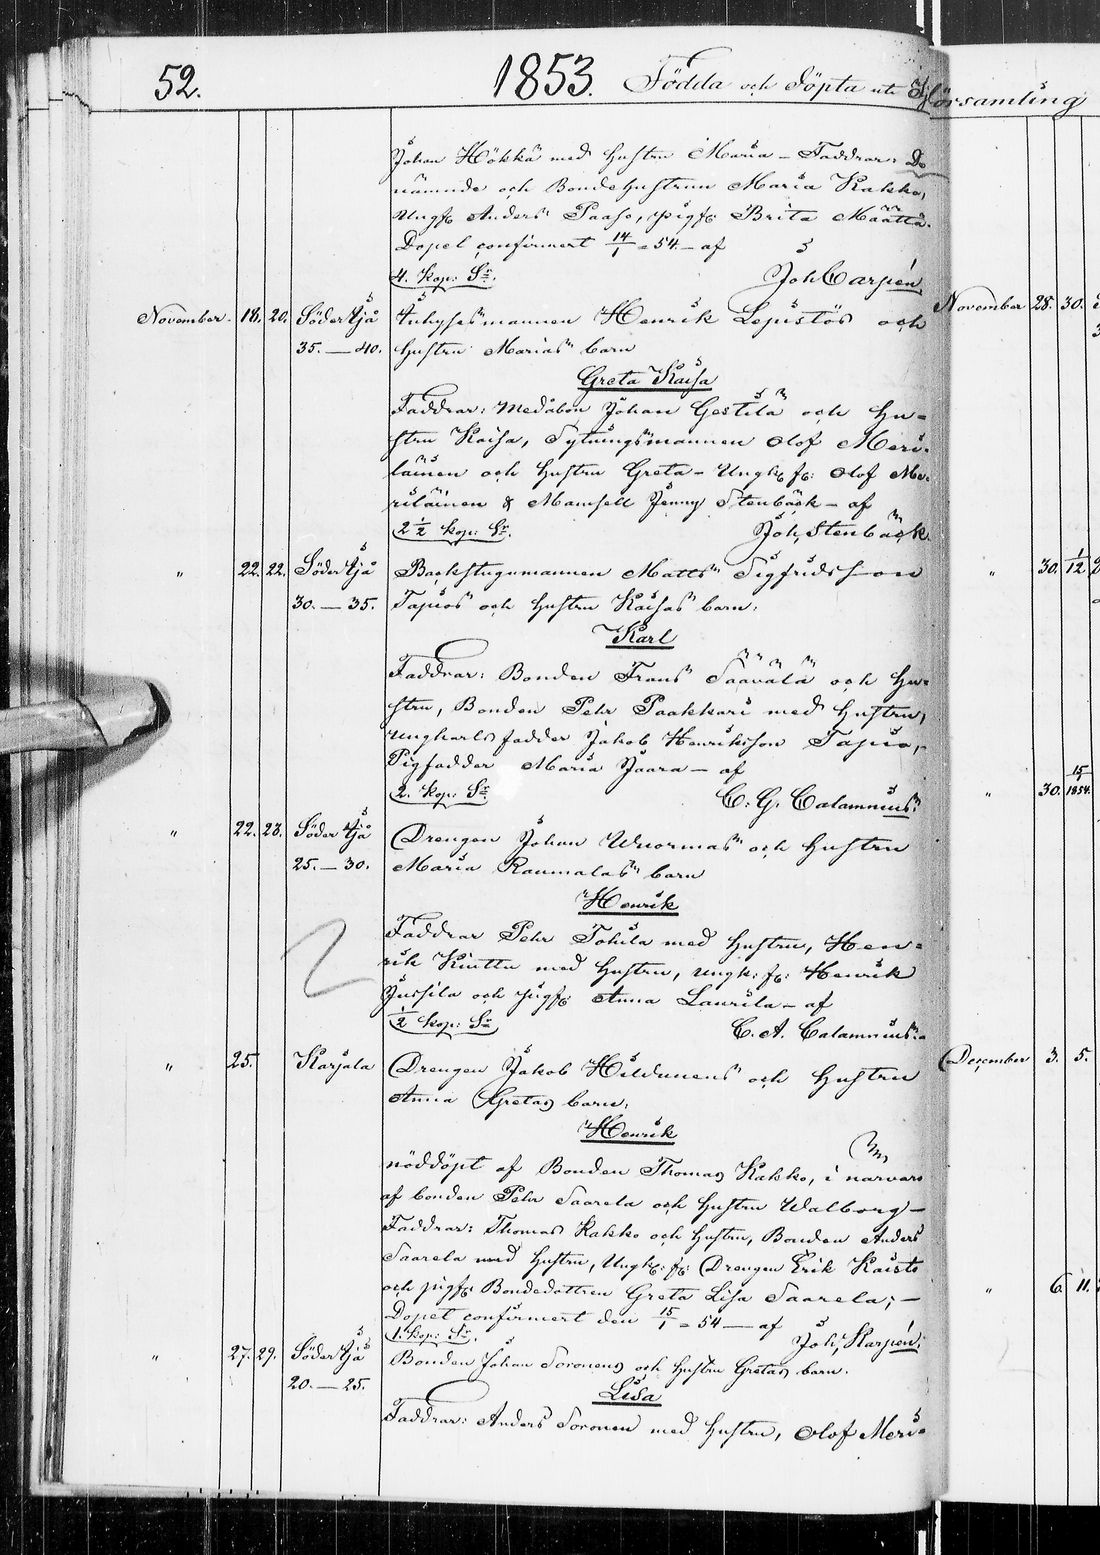 52. 1853. Födda och Döpta uti
församling
Johan Hökkä med hustru Maria – Faddrar: Be
nämnde och Bondehustrun Maria Kakko,
Ungf. Anders Paaso, pigf. Brita Määttä.
Dopet confirmert 14/1 = 54 – af
4. kop: Sr. Joh Carpén.
November. 18. 20. Söder Ijå Inhysesmannen Henrik Lepistös och
35. — 40. hustru Marias barn
Greta Kaisa
Faddrar: Medåbon Johan Gestilä och hu=
stru Kaisa, Sytningsmannen Olof Meri=
läinen och hustru Greta – Ungk. f: Olof Me=
riläinen & Mamsell Jenny Stenbäck – af
2 1/2 kop: Sr. Joh, Stenbäck.
" 22. 22. Söder Ijå Backstugumannen Matts Sigfridsson
30. — 35. Tapios och hustru Kaisas barn:
Karl
Faddrar: Bonden Frans Säävälä och hu=
stru, Bonden Pehr Paakkari med hustru,
ungkarls fadder Jakob Henriksson Tapio,
Pigfadder Maria Jaara – af
2. kop: Sr. C. G. Calamnius.
" 22. 23. Söder Ijå Drengen Johan Wuormas och hustru
25. — 30. Maria Raumalas barn
Henrik
Faddrar Pehr Tohila med hustru, Hen=
rik Kinttu med hustru, ungk: f: Henrik
Jussila och pigf: Anna Laurila – af
1/2 kop: Sr C. A. Calamnius.
" 25. Karjala Drengen Jakob Hildunens och hustru
Anna Gretas barn:
Henrik
nöddöpt af Bonden Thomas Kakko, i närvaro
af bonden Pehr Saarela och hustru Walborg –
Faddrar: Thomas Kakko och hustru, Bonden Anders
Saarela med hustru, Ungk: f: Drengen Erik Kaisto
och pigf: Bondedottren Greta Lisa Saarela; –
Dopet confirmert den 15/1 = 54 — af
1. kop: Sr. Joh, Karpén.
" 27. 29. Söder Ijå Bonden Johan Soronens och hustru Gretas barn.
20. — 25.
Lisa
Faddrar: Anders Soronen med hustru, Olof Meri=
November 28. 30.
" 30. 1/12
" 30. 15/1854.
December 3. 5.
" 6. 11.